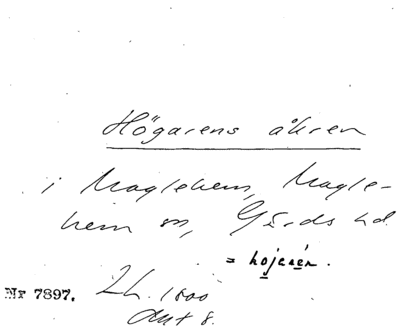 Högarens åkren
i Maglehem, Magle-
hem sn, Gärds hd.
= hojerén.
Nr 7897. Lh. 1800
akt 8.